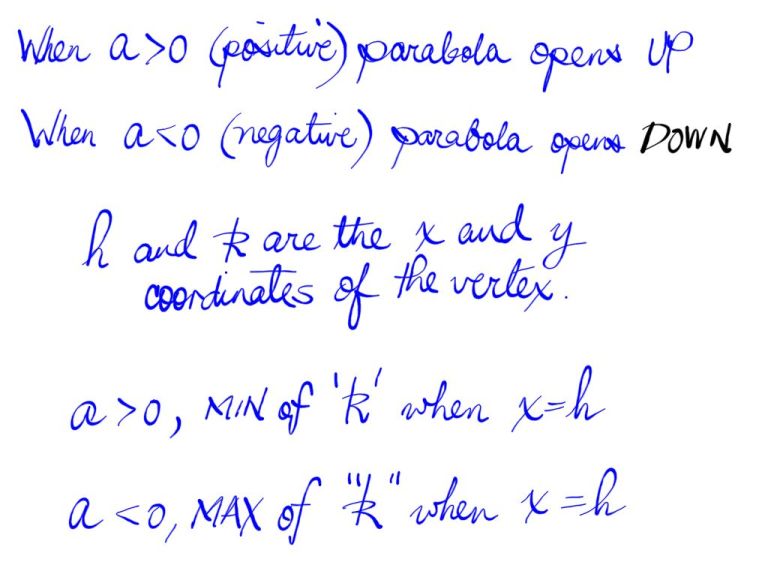 When a>0 (positive) parabola opens UP
When a<0 (negative) parabola opens DOWN
h and k are the x and y
coordinates of the vertex.
a>0, MIN of 'k' when x=h
a<0, MAX of "k" when x=h